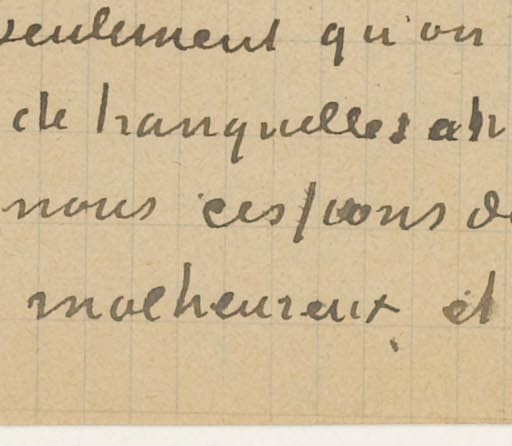 seulement qu'on
de tranquelles et
nous cessions de
malheureux, et